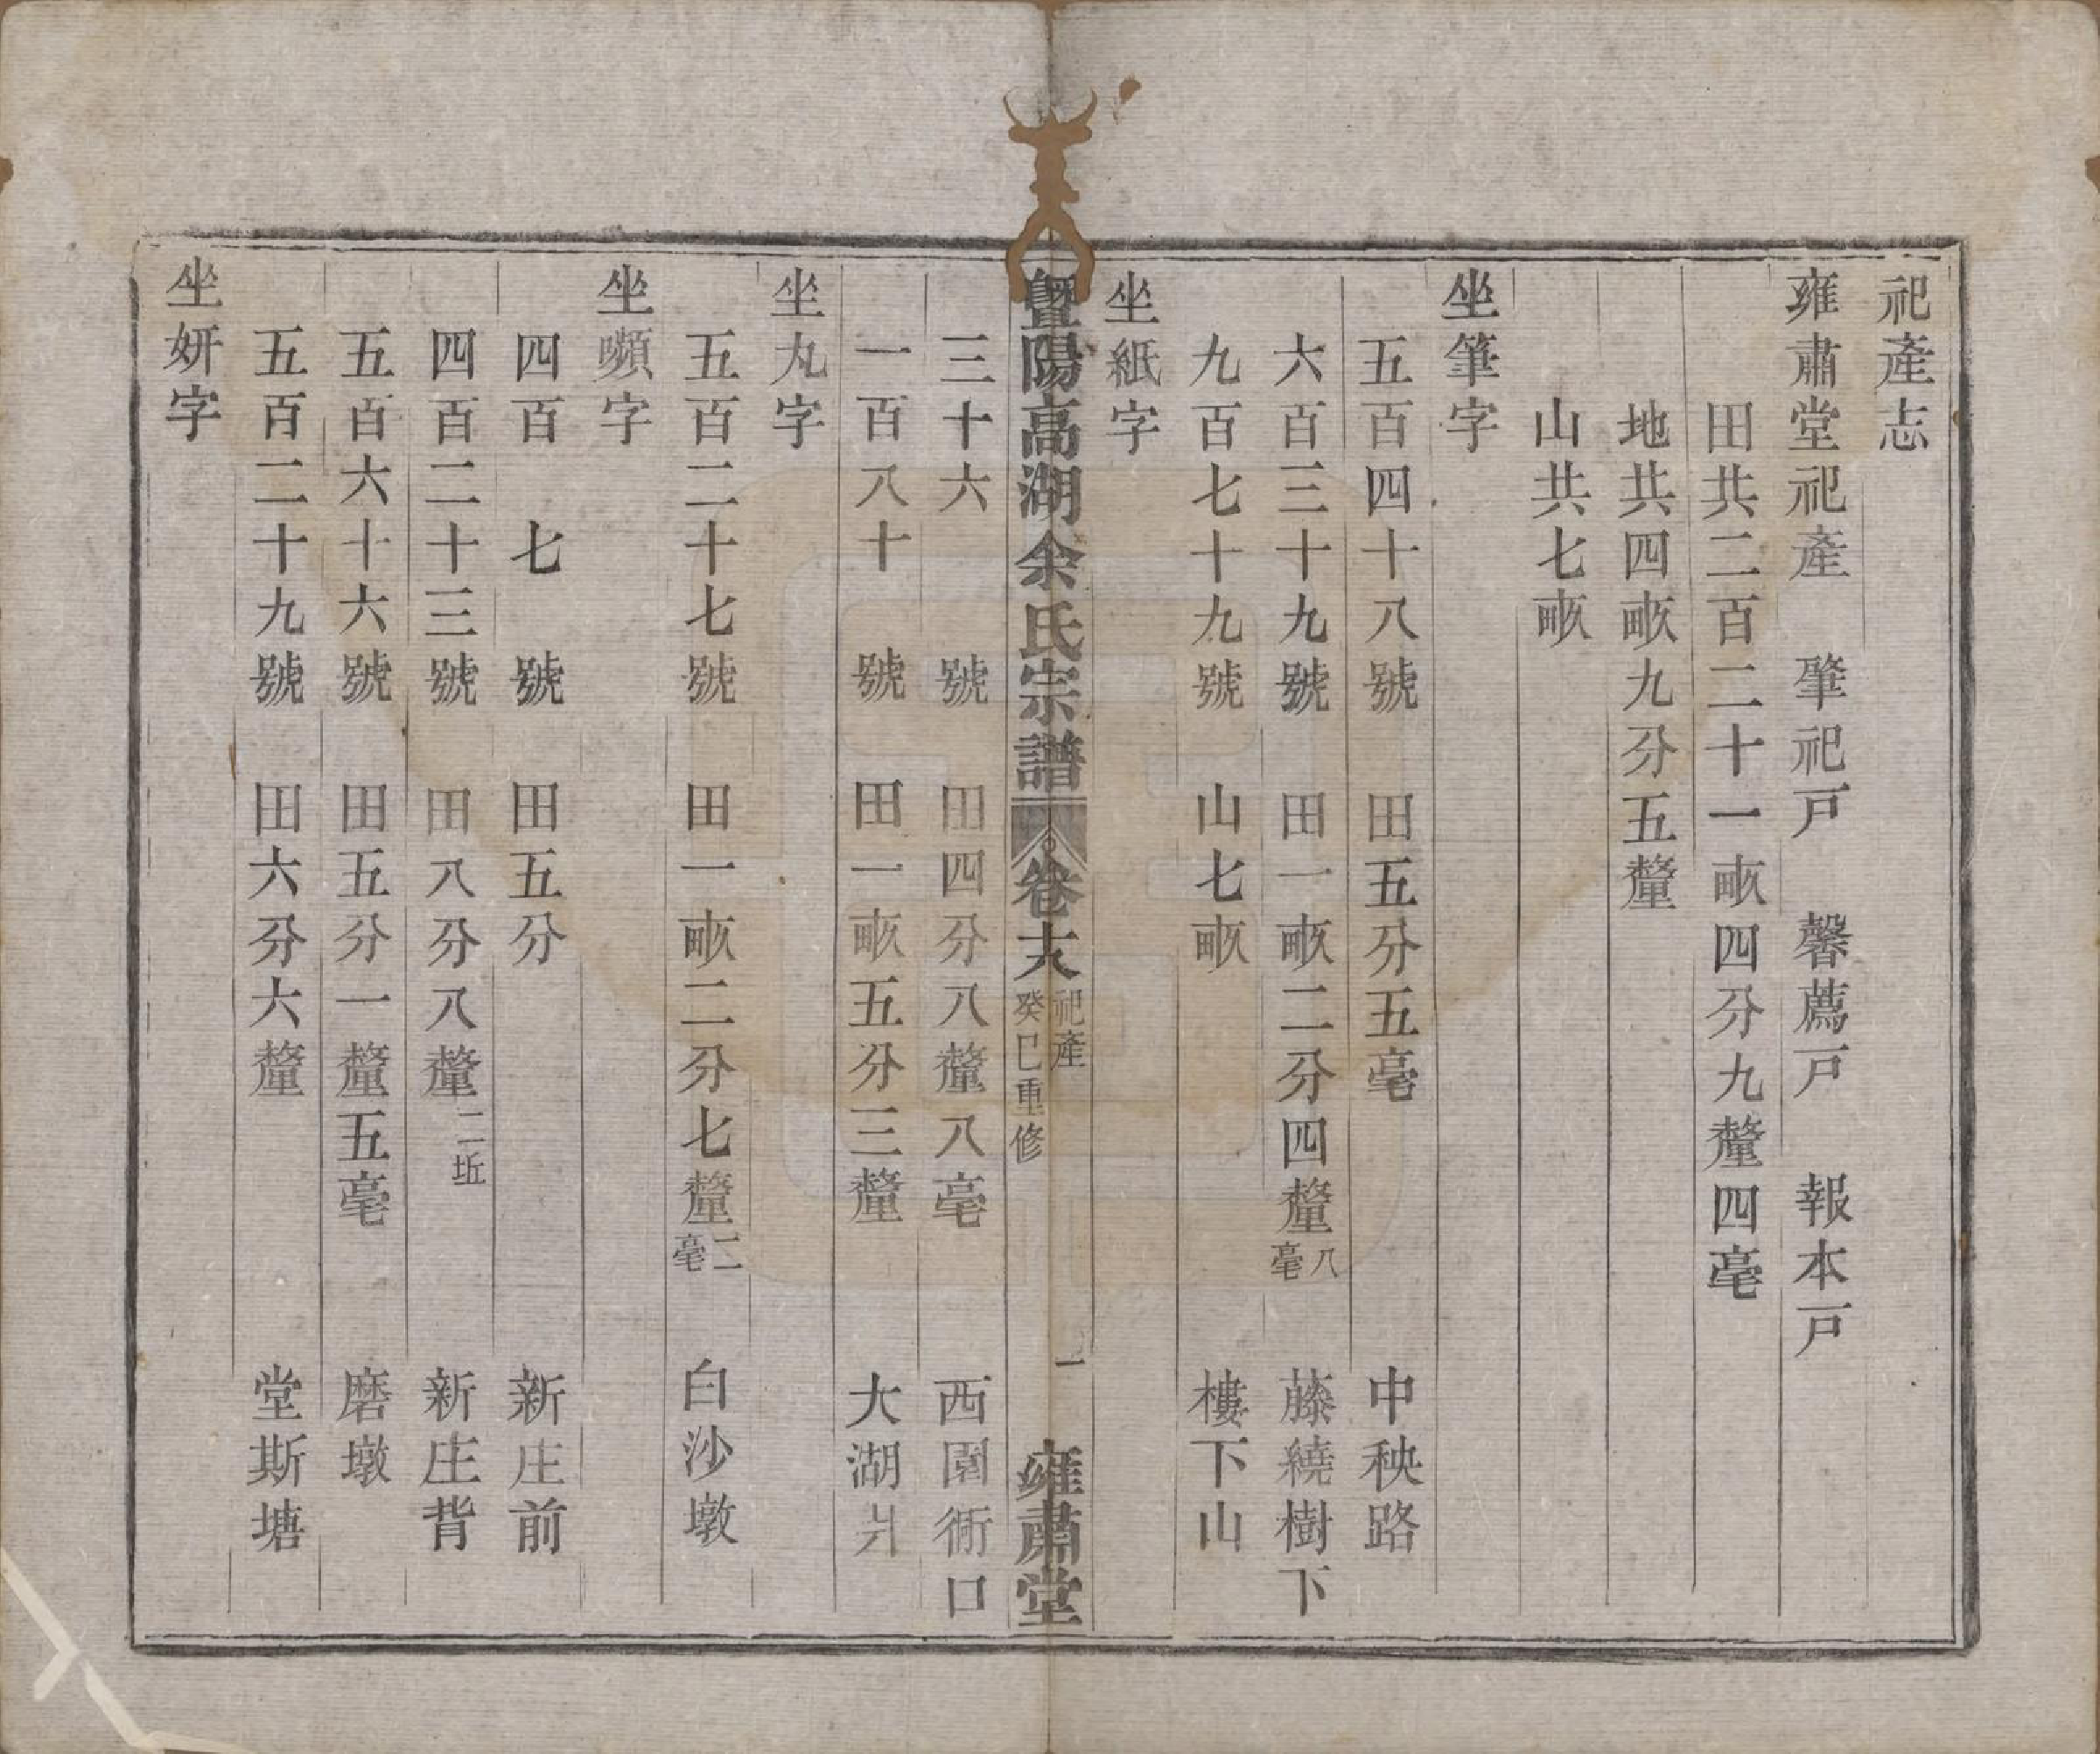 祀產志
雍肅堂祀產　肇祀戸　馨薦戸　報本戸
田共二百二十一畝四分九釐四毫
地共四畝九分五釐
山共七畝
坐筆字
五百四十八號　田五分五毫　中秧路
六百三十九號　田一畝二分四釐八毫　藤繞樹下
九百七十九號　山七畝　樓下山
坐紙字
暨陽高湖余氏宗譜　卷　祀產　癸巳重修　一　雍肅堂
三十六　號　田四分八釐八毫　西園衕口
一百八十　號　田一畝五分三釐　大湖爿
坐丸字
五百二十七號　田一畝二分七釐二毫　白沙墩
坐嚬字
四百　七　號　田五分　新庄前
四百二十三號　田八分八釐二坵　新庄背
五百六十六號　田五分一釐五毫　磨墩
五百二十九號　田六分六釐　堂斯塘
坐妍字